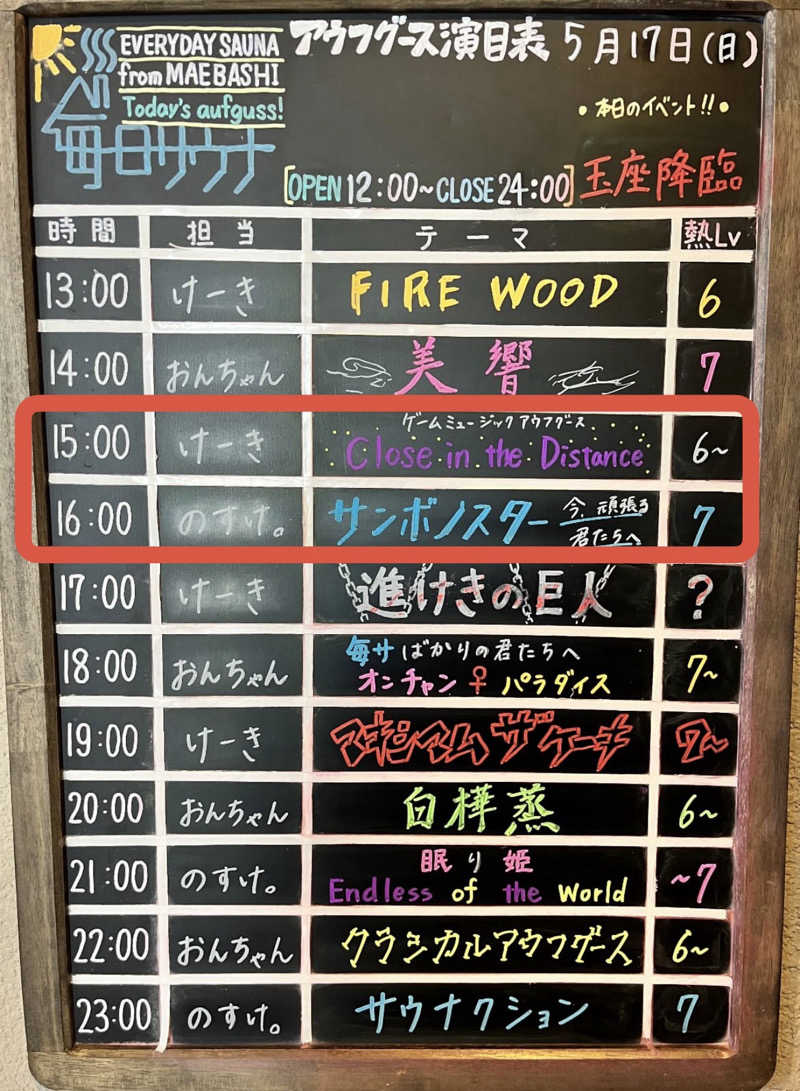 EVERYDAY SAUNA
from MAEBASHI
Today's aufguss!
毎日サウナ
アウフグース演目表 5月17日(日)
•本日のイベント!!•
[OPEN 12:00~CLOSE 24:00] 玉座降臨
時間 担当 テーマ 熱Lv
13:00 けーき FIRE WOOD 6
14:00 おんちゃん 美響 7
ゲームミュージックアウフグース
15:00 けーき Close in the Distance 6~
16:00 のすけ。 サンボノスター 今、頑張る 7
君たちへ
17:00 けーき 進けきの巨人 ?
毎サばかりの君たちへ
18:00 おんちゃん オンチャン♀パラダイス 7~
19:00 けーき マキシマムザケーキ 7~
20:00 おんちゃん 白樺蒸 6~
眠り姫
21:00 のすけ。 Endless of the World ~7
22:00 おんちゃん クラシカルアウフグース 6~
23:00 のすけ。 サウナクション 7